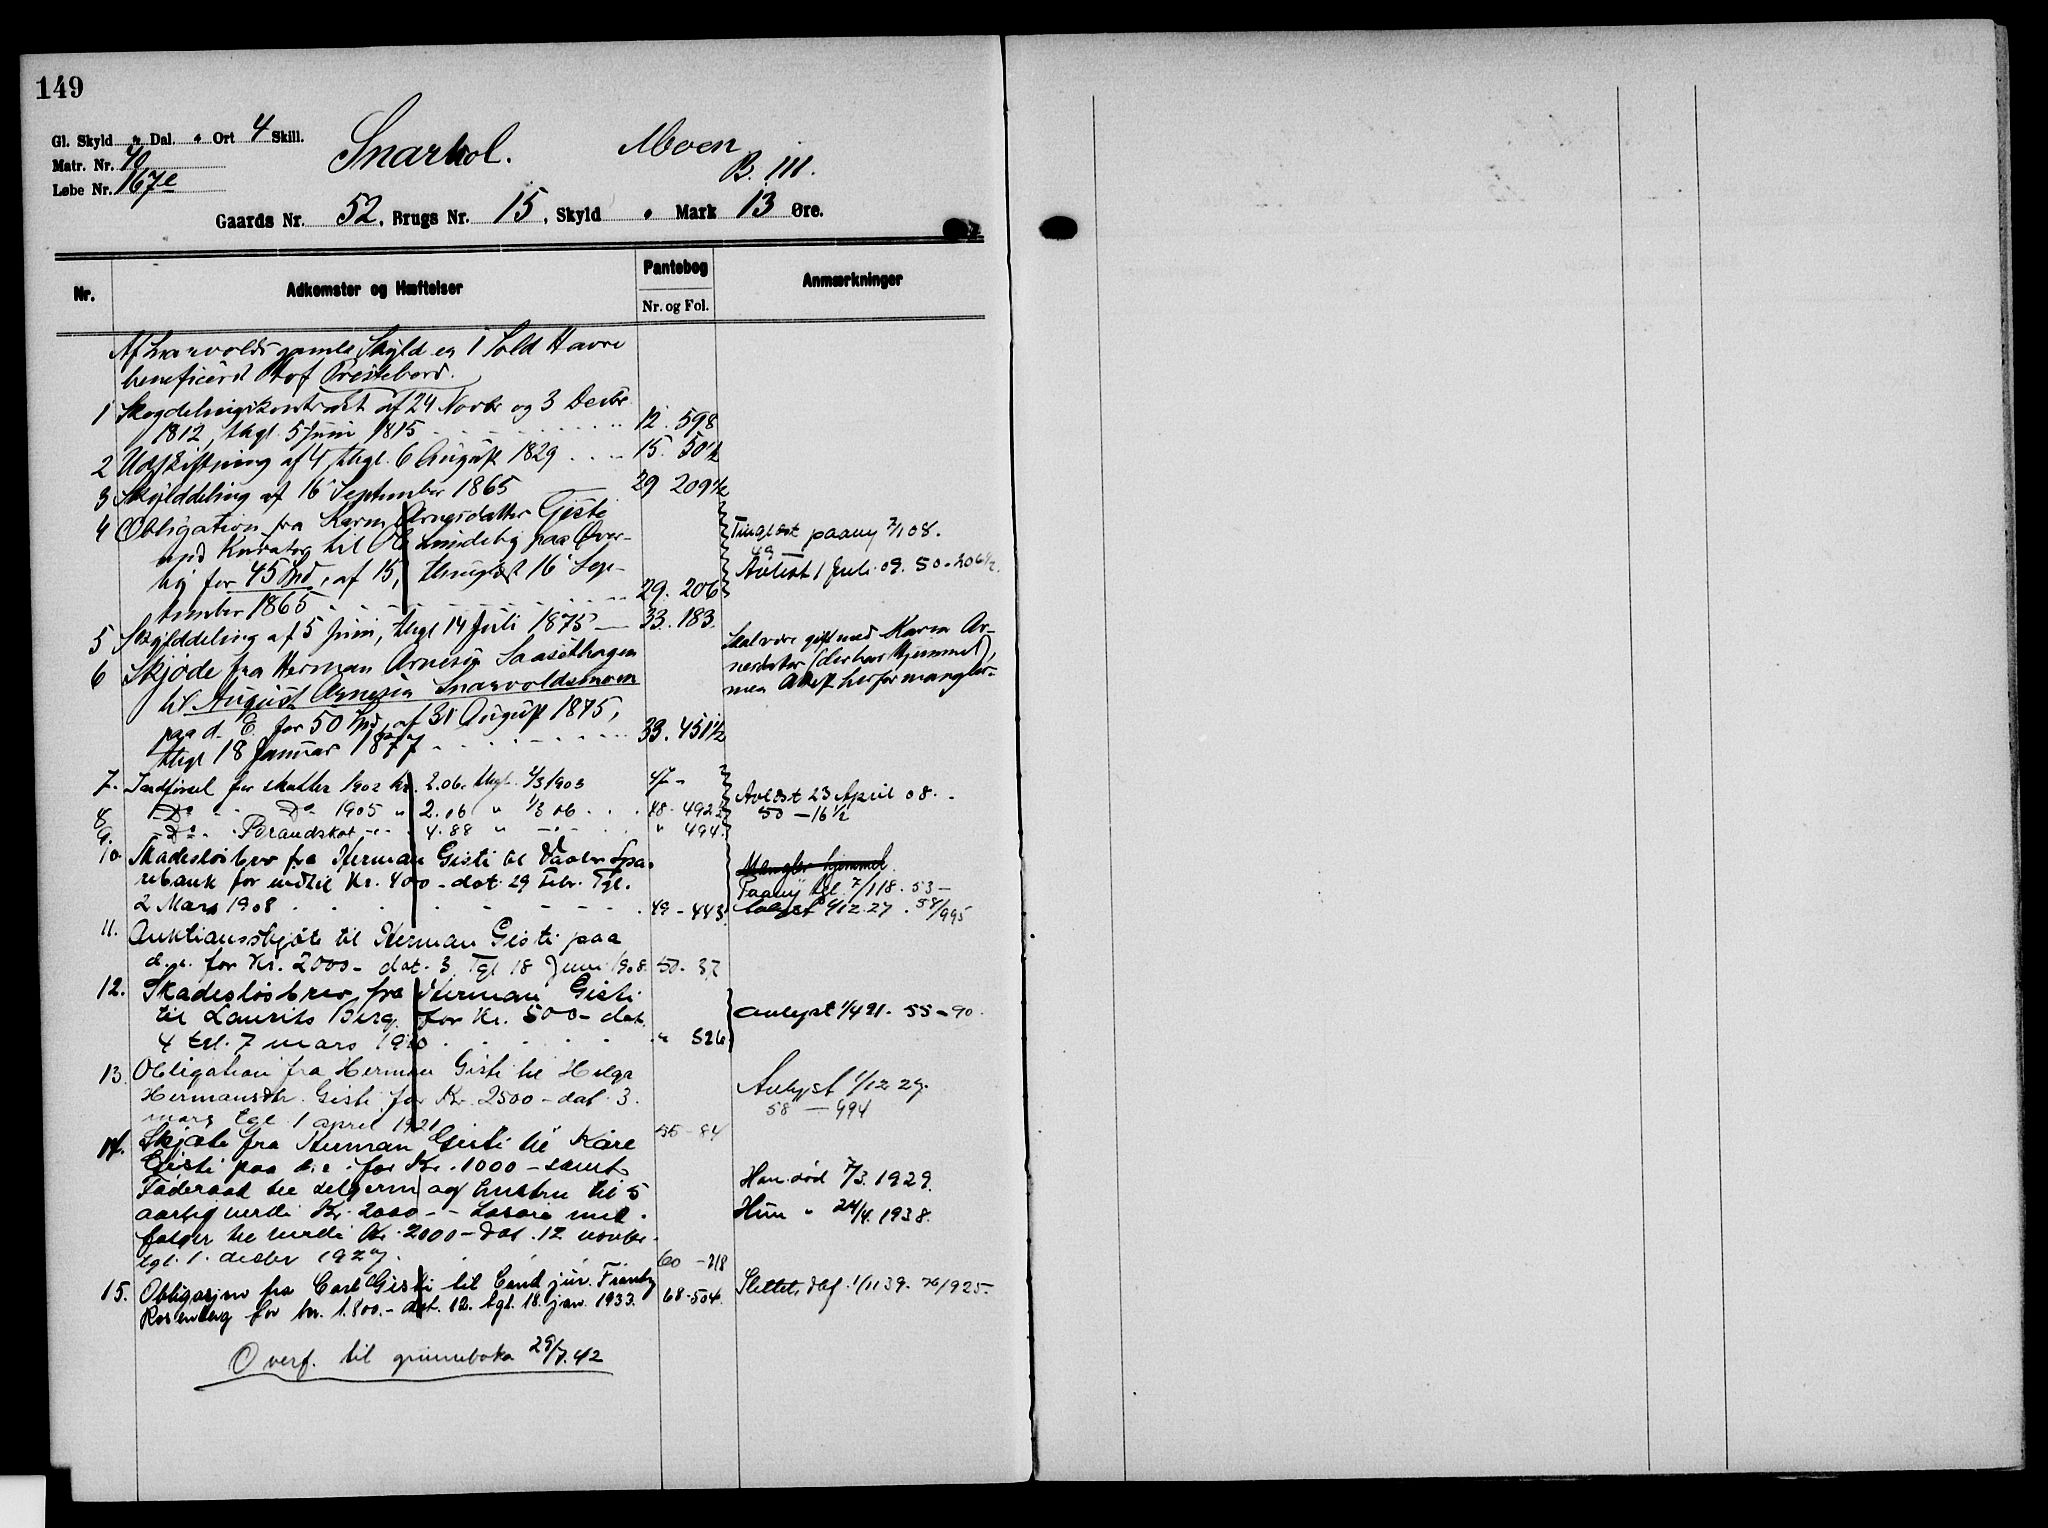 149
Gl. Skyld " Dal. " Ort 4 Skill.
Matr. Nr. 40
Løbe Nr. 167e
Snarhol. Moen
B. III.
Gaards Nr. 52, Brugs Nr. 15, Skyld " Mark 13 Øre.
Nr. Adkomster og Hæftelser Pantebog Anmærkninger
Nr. og Fol.
Af Snarvolds gamle Skyld er 1 Sold Havre
beneficeret Prestebord.
1 Skogdelingskontrakt af 24 Novbr og 3 Decbr
1812, thgl. 5 Juni 1815 12. 598
2 Udskiftning af 4 thgl. 6 August 1829 15. 50½
3 Skylddeling af 16 September 1865 29 209½
4 Obligation fra Karen Arnesdatter Gisti
med Kurator til Ole Lundeby paa Over-
by for 45 Spd, af 15, thinglæst 16 Sep-
tember 1865 29. 206
Tinglæst paany 7/1 08.
49
Avlæst 1 Juli 09. 50-206½.
5 Skylddeling af 5 Juni, thgl 14 Juli 1875 33. 183.
6 Skjøde fra Herman Arnesen Saasethagen
til August Arnesen Snarvoldsmoen
paa d. E. for 50 Spd, af 31 August 1875,
thgl 18 Januar 1877 33. 451½
Skal være gift med Karen Ar-
nesdatter (der har Hjemmel),
men Attest herfor mangler.
7. Indførsel for skatter 1902 Kr. 2.06. thgl. 4/3 1903 47-
8 Do - Do 1905 " 2.16 " 1/3 06 48-492
9. Do - Brandskat - - 4.88 " " 494.
Avlæst 23 April 08.
50-16½
10 Skadesløsbrev fra Herman Gisti til Vaaler Spa-
rebank for indtil Kr. 400- dat. 29 Febr. Tgl.
2 Mars 1908 49-443
Mangler hjemmel.
Paany tgl. 7/1 18. 53-
Avlyst 1/12.27. 58/995
11. Auktionsskjøte til Herman Gisti paa
d.e. for Kr. 2000- dat. 3. Tgl 18 Juni 1908. 50-37
12. Skadesløsbrev fra Herman Gisti
til Laurits Berg. for Kr. 500- dat.
4 tgl. 7 mars 1910 " 526
avlyst 1/4 21. 55-90.
13. Obligation fra Herman Gisti til Helga
Hermansdtr. Gisti for Kr. 2500- dat. 3.
mars tgl. 1 april 1921 55-84
Avlyst 1/12 27.
58-994
14. Skjøte fra Herman Gisti til Kåre
Gisti paa d.e. for Kr. 1000- samt
Føderaad til selgeren og hustru til 5
aarlig verdi Kr. 2000- - Løsøre med-
følger til verdi Kr. 2000- Dat. 12 novbr.
tgl. 1. decbr 1927. 60-218
Han død 7/3. 1929.
Hun " 24/4. 1938.
15. Obligasjon fra Carl Gisti til Cand. jur.
Rosenberg for kr. 1.800.- dat. 12. tgl. 18. jan. 1933. 68-504.
Slettet, dbf. 1/11 39. 76/925.
Overf. til grunneboka 29/7.42